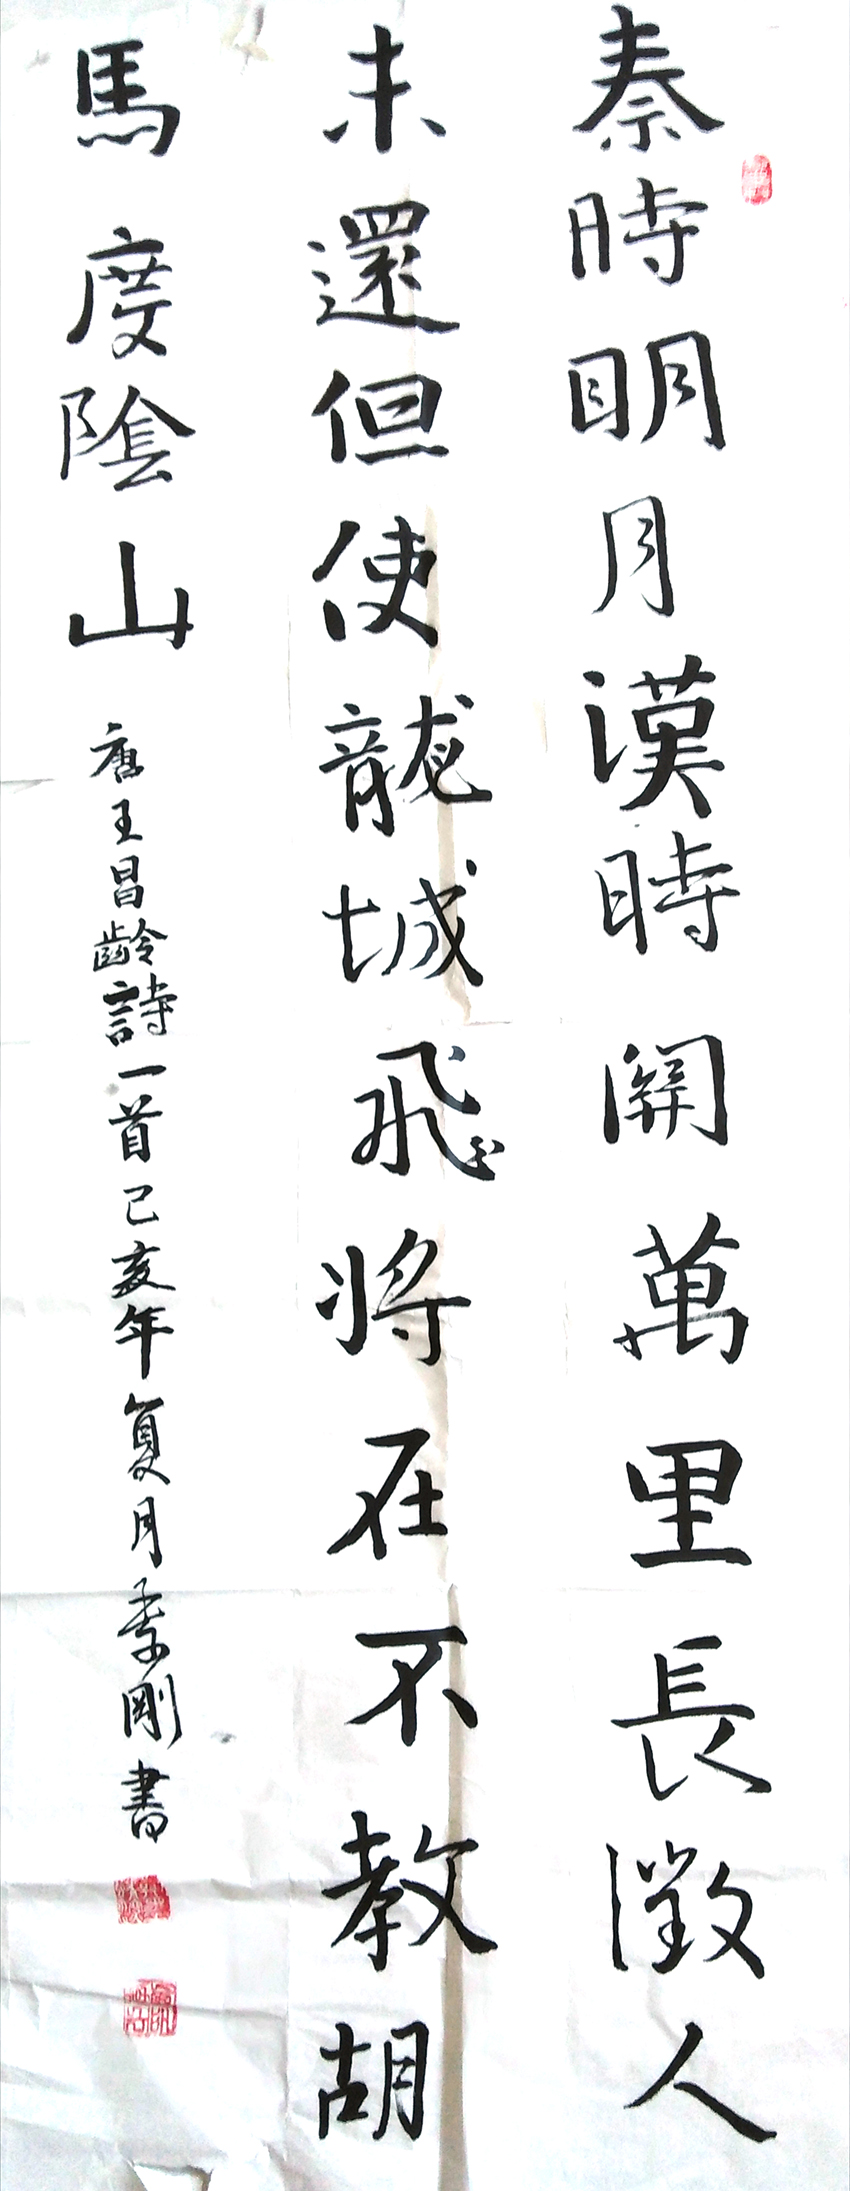 秦時明月漢時關萬里長徵人
未還但使龍城飛將在不教胡
馬度陰山
唐王昌齡詩一首己亥年夏月李剛書